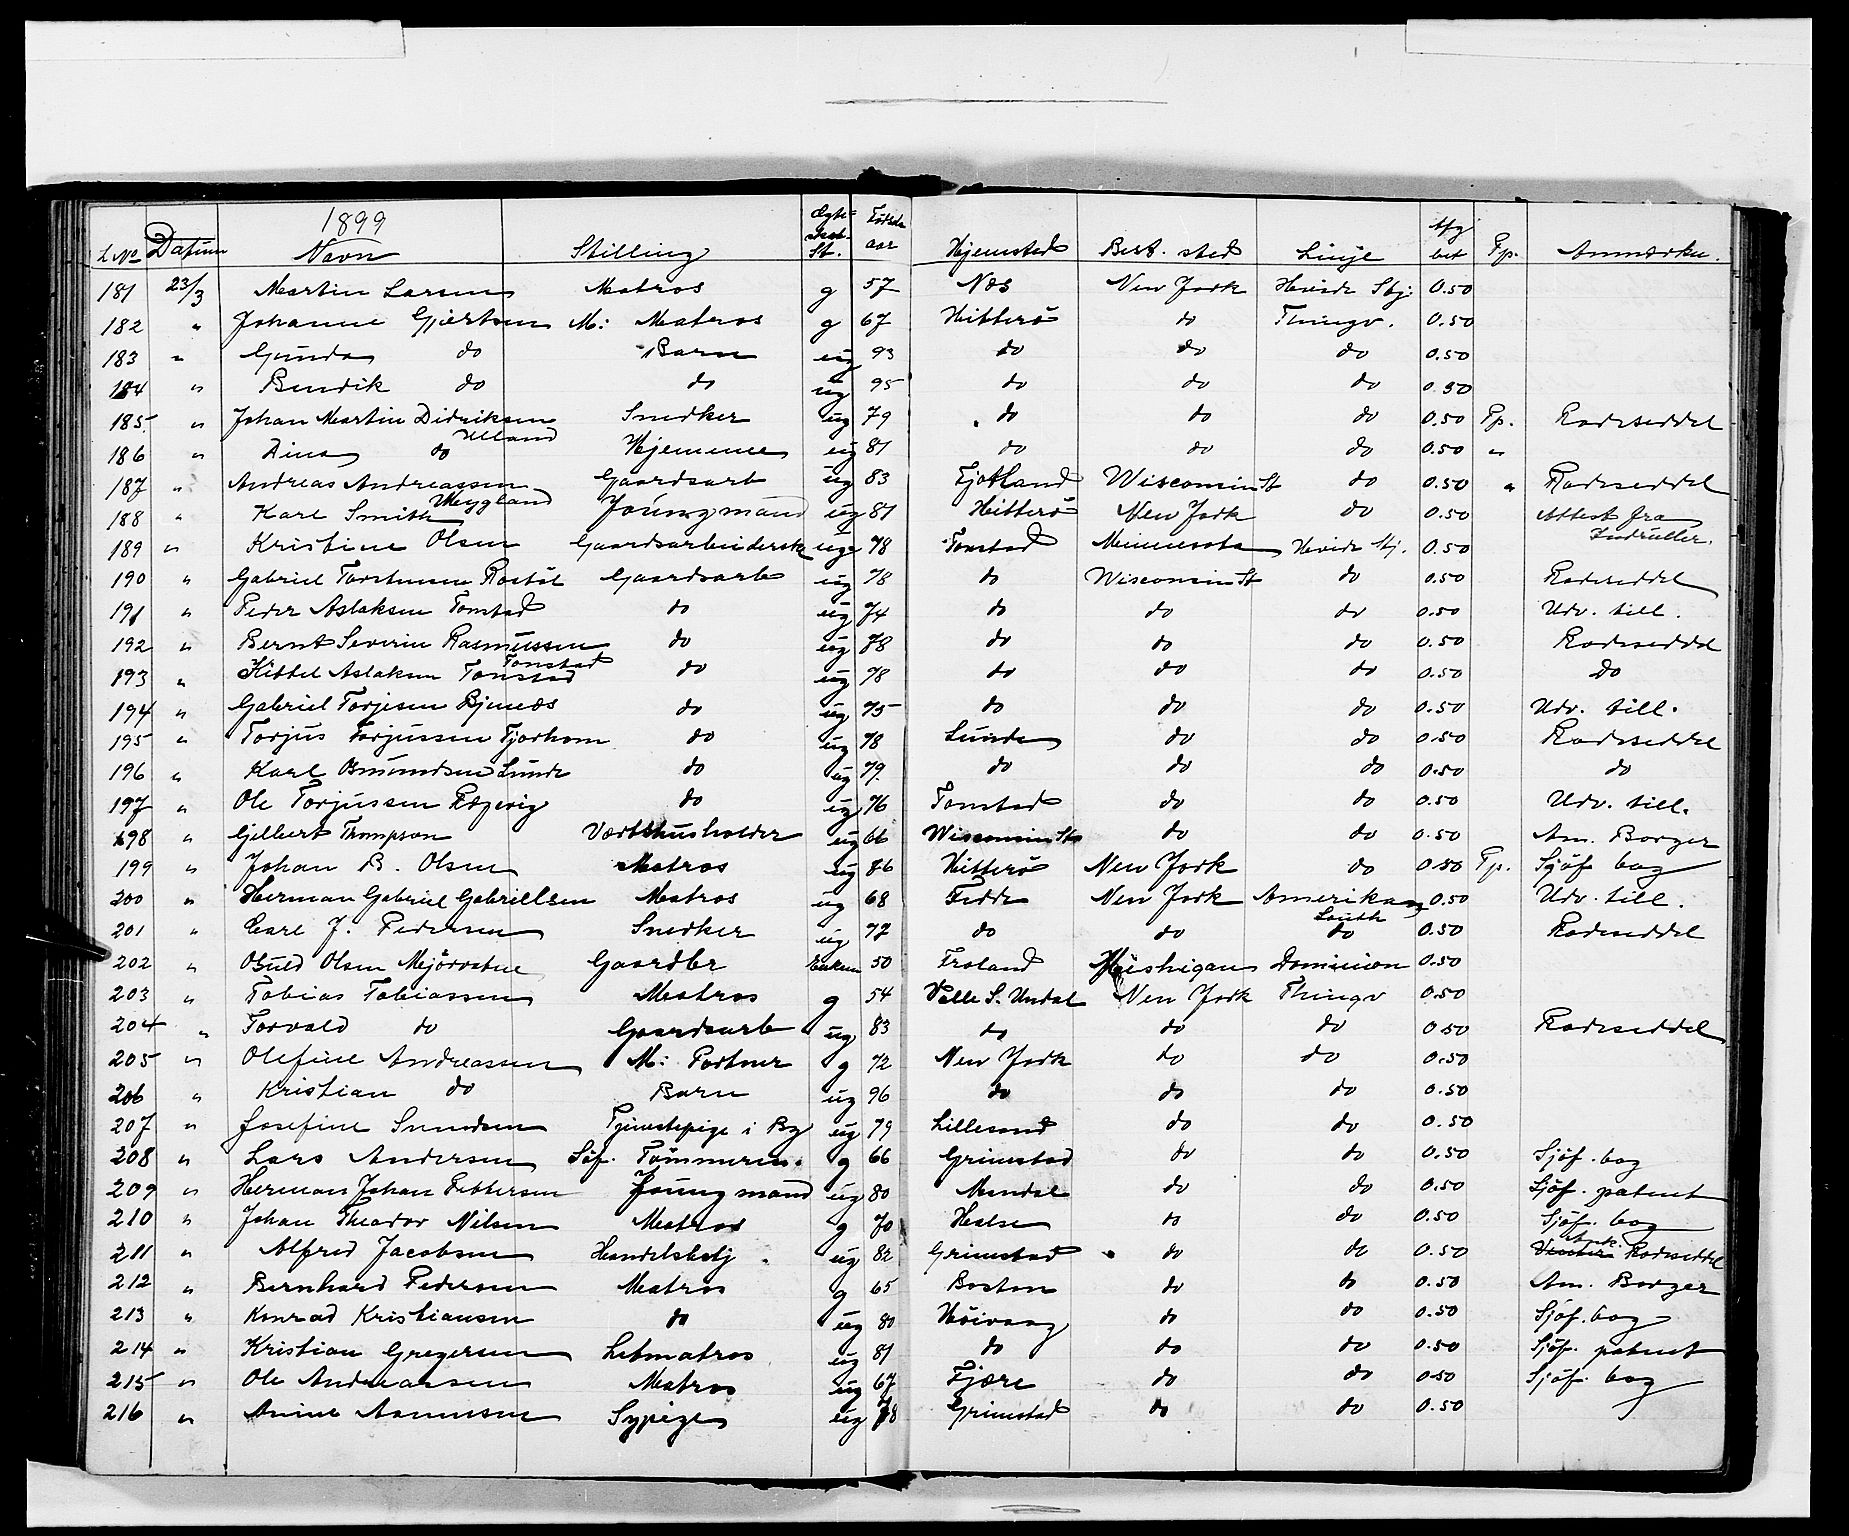 1899
L No Datum Navn Stilling Ægte- skab. St. Fødsels aar Hjemsted Best. sted Linje Afg bet Pp. Anmærkn.
181 23/3 Martin Larsen Matros g 57 Næs New York Hvide Stj: 0.50
182 " Johanne Gjertsen M: Matros g 67 Hitterö do Thingv. 0.50
183 " Gunda do Barn ug 93 do do do 0.50
184 " Bendik do do ug 95 do do do 0.50
185 " Johan Martin Didriksen Snedker ug 79 do do do 0.50 Pp. Rodeseddel
186 " Dina do Ulland Hjemme ug 81 do do do 0.50 "
187 " Andreas Andreassen Gaardsarb ug 83 Fjotland Wisconsin St do 0.50 " Rodeseddel
188 " Karl Smith Meygland Joungmand ug 81 Hitterö New York do 0.50 Attest fra Indruller.
189 " Kristine Olsen Gaardsarbeidersk ug 78 Tonstad Minnesota Hvide Stj. 0.50
190 " Gabriel Torstensen Rostöl Gaardsarb ug 78 do Wisconsin St do 0.50 Rodeseddel
191 " Peder Aslaksen Tonstad do ug 74 do do do 0.50 Udv. till.
192 " Bernt Severin Rasmussen do ug 78 do do do 0.50 Rodeseddel
193 " Kittel Aslaksen Tonstad Tonstad do ug 78 do do do 0.50 do
194 " Gabriel Torjesen Bjunes do ug 75 do do do 0.50 Udv. till.
195 " Torjus Torjussen Tjorhom do ug 78 Lunde do do 0.50 Rodeseddel
196 " Karl Osmundsen Lunde do ug 79. do do do 0.50 do
197 " Ole TorjussenRæge­vig do ug 76 Tonstad do do 0.50 Udv. till.
198 " Gilbert Thompson Værtshusholder ug 66 Wisconsin St do do 0.50 Am. Borger
199 " Johan B. Olsen Matros ug 86 Hitterö New York do 0.50 Pp. Sjöf bog
200 " Herman Gabriel Gabrielsen Matros ug 68 Fedde New York Amerikan 0.50 Udv. till.
201 " Carl J. Pedersen Snedker ug 77 do do South do 0.50 Rodeseddel
202 " Guld Olsen Mjövatne Gaardbr Enkem 50 Froland Mishigan Dominion 0.50
203 " Tobias Tobiassen Matros g 54 Valle S. Undal New York Thingv 0.50
204 " Torvald do Gaardsarb ug 83 do do do 0.50 Rodeseddel
205 " Olefine Andreassen M: Portner g 72 New York do do 0.50
206 " Kristian do Barn ug 96 do do do 0.50
207 " Josefine Svendsen Tjenestepige i By ug 79 Lillesand do do 0.50
208 " Lars Andersen Söf. Tömmerm. g 66 Grimstad do do 0.50 Sjöf. bog
209 " Herman Johan Pettersen Joungmand ug 80 Mandal do do 0.50 Sjöf. patent
210 " Johan Theodor Nilsen Matros g 70 Halse do do 0.50 Sjöf. bog
211 " Alfred Jacobsen Handelsbetj. ug 82 Grimstad do do 0.50 Rodeseddel
212 " Bernhard Pedersen Matros g 65 Boston do do 0.50 Am. Borger
213 " Konrad Kristiansen do ug 80 Höivaag do do 0.50 Sjöf. bog
214 " Kristian Gregersen Letmatros ug 81 do do do 0.50 Sjöf. patent
215 " Ole Andreassen Matros ug 67 Fjære do do 0.50 Sjöf. bog
216 " Anine Asmussen Sypige ug 78 Grimstad do do 0.50